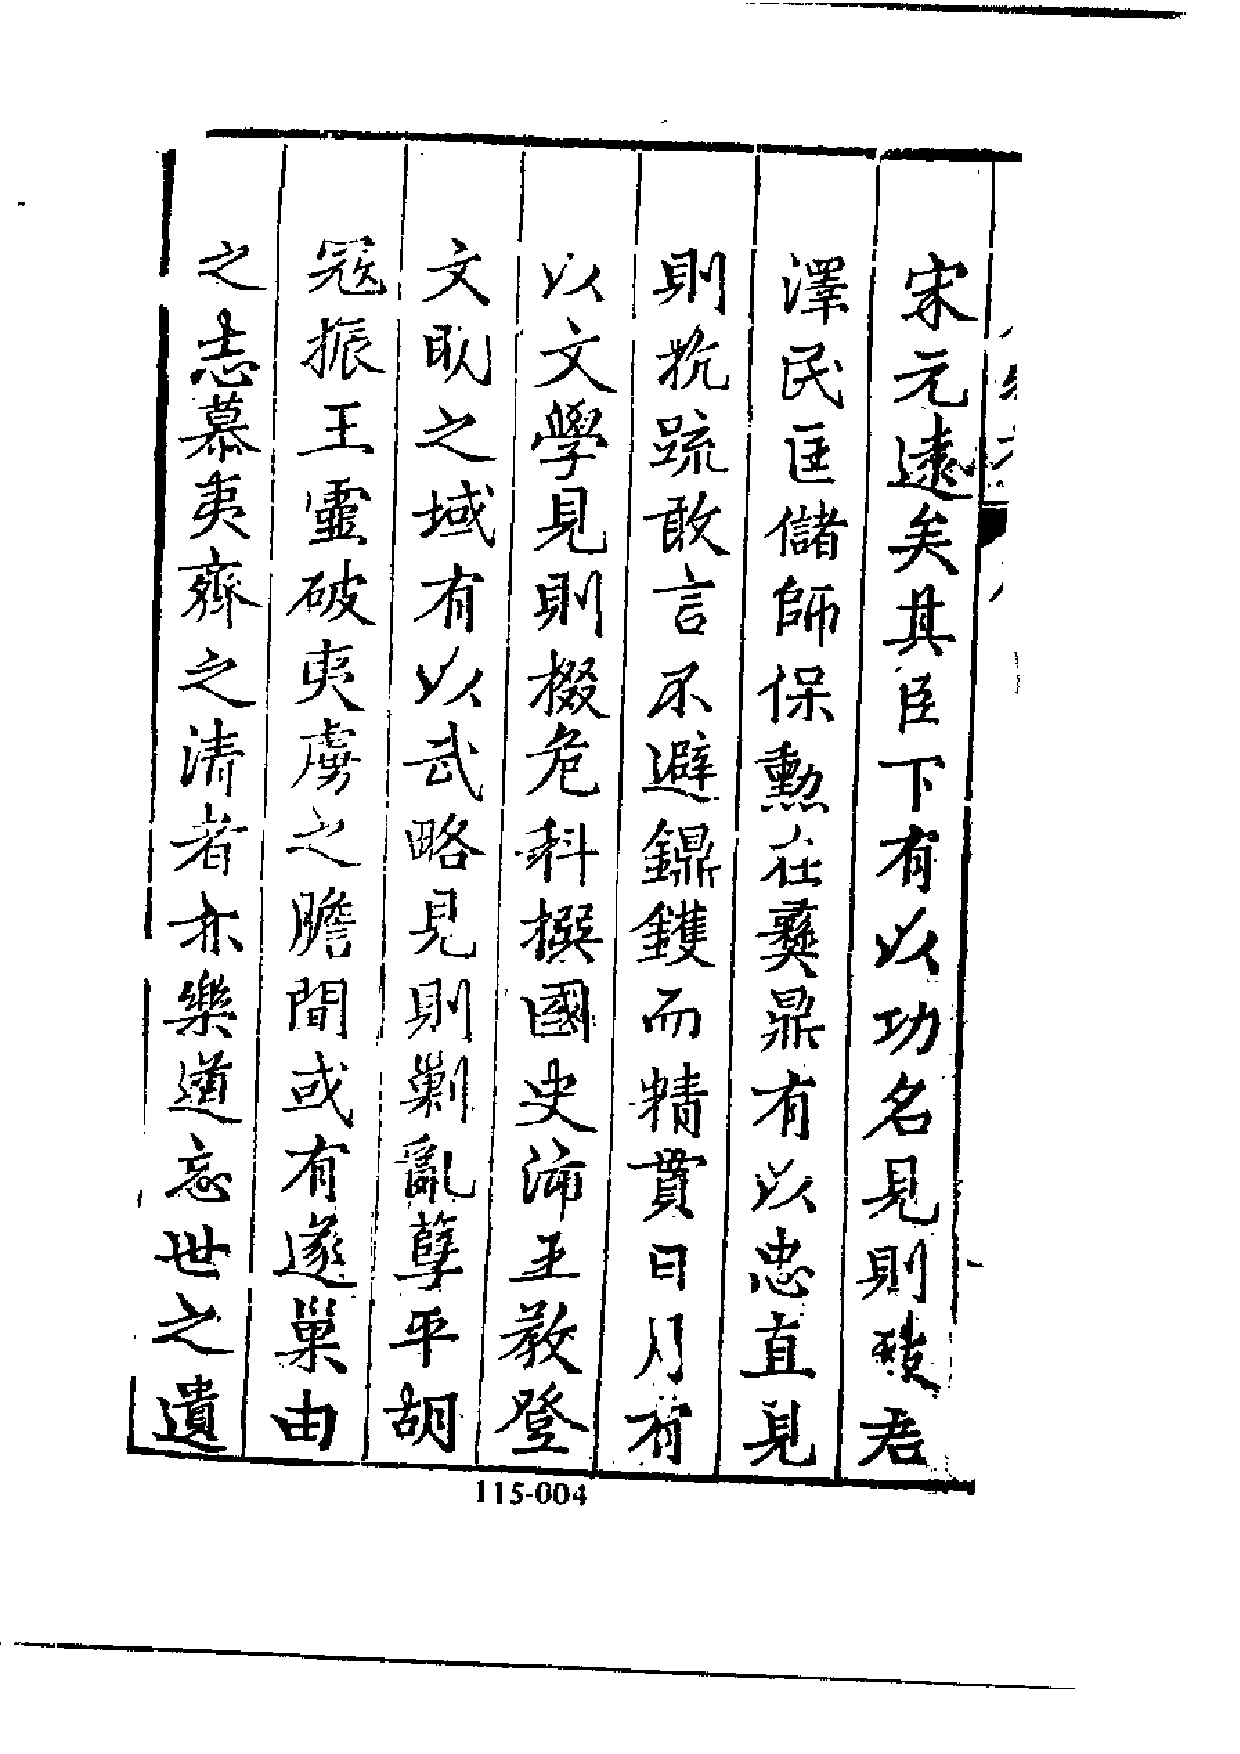 宋元遠矣其臣下有以功名見則致君
澤民匡儲師保勳在彝鼎有以忠直見
則抗疏敢言不避鐤鑊而精貫日月有
以文學見則掇危科撰國史沛王教登
文畎之域有以武略見則剿亂孽平胡
寇振王靈破夷虜之膽間或有遂巢由
之志慕夷齊之清者亦樂道忘世之遺
115-004